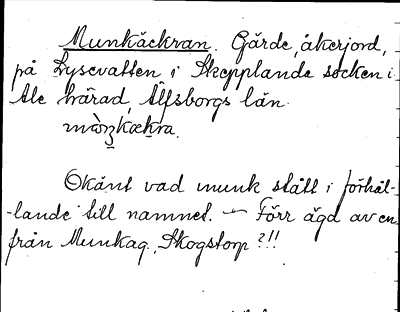 Munkäckran. Gärde, åkerjord,
på Lysevatten i Skepplanda socken i
Ale härad, Älfsborgs län.
Okänt vad munk stått i förhål-
-lande till namnet. — Förr ägd av en
från Munkag. Skogstorp?!!